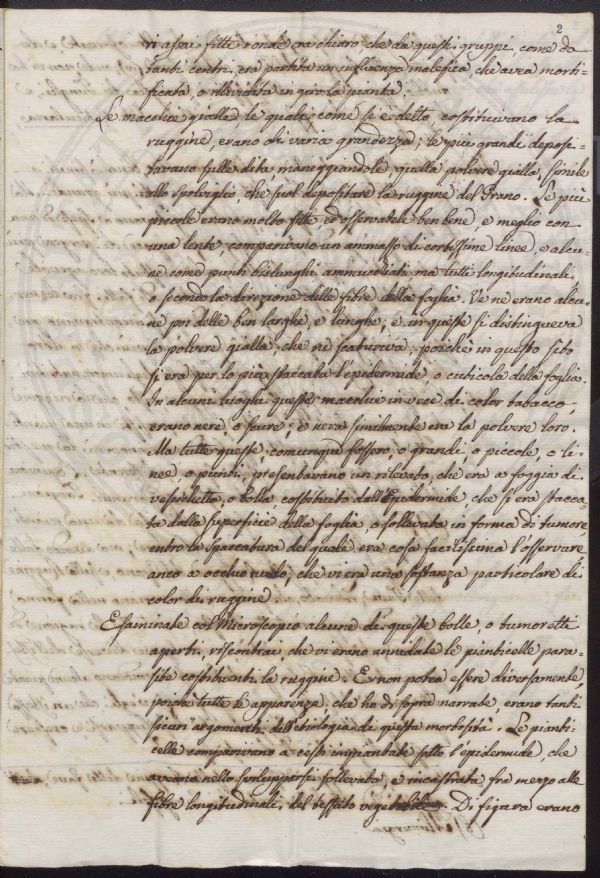 2
ri assai fitti: onde era chiaro, che da questi gruppi, come da
tanti centri, era partita una influenza malefica, che avea morti-
ficata, o in giro la pianta.
Le macchie gialle le quali, come si è detto, costituivano la
ruggine, erano di varia grandezza; le più grandi deposi-
tavano sulle dita, maneggiandole quella polvere gialla, simile
allo spolviglio, che suol depositare la ruggine del Grano. Le più
piccole erano molto fitte, ed osservatele ben bene, e meglio con
una lente, comparivano un ammasso di cortissime linee, e alcu-
ne come punti bislunghi ammucchiati, ma tutti longitudinali,
o secondo la direzione delle fibre della foglia. Ve ne erano alcu-
ne poi delle ben larghe, e lunghe, e in queste si distingueva
la polvere gialla, che ne scaturiva, poichè in questo sito
si era per lo più staccata l'epidermide, o cuticola della foglia.
In alcuni luoghi queste macchie in vece di color tabacco,
erano nere, o scure; e nera similmente era la polvere loro.
Ma tutte queste, comunque fossero, o grandi, o piccole, o li-
nee, o punti, presentavano un rilevato, che era a foggia di
vescichetta, o bolla costituito dall'Epidermide, che s'era stacca-
ta dalla superficie della foglia, o sollevata in forma di tumore,
entro la spaccatura del quale era cosa facilissima l'osservare
anco a occhio nudo, che vi era una sostanza particolare di
color di ruggine.
Esaminate col Microscopio alcune di queste bolle, o tumoretti
aperti, riscontrai, che vi erano annidate le pianticelle para-
site costituenti la ruggine. E non potea essere diversamente
poichè tutte le apparenze, che ho di sopra narrate, erano tanti
sicuri argomenti dell'etiologia di questa morbosità. Le pianti-
celle comparivano a cesti impiantate sotto l'epidermide, che
aveano nello svilupparsi sollevata, e incastrata fra mezzo alle
fibre longitudinali del tessuto vegetabile. Di figura erano